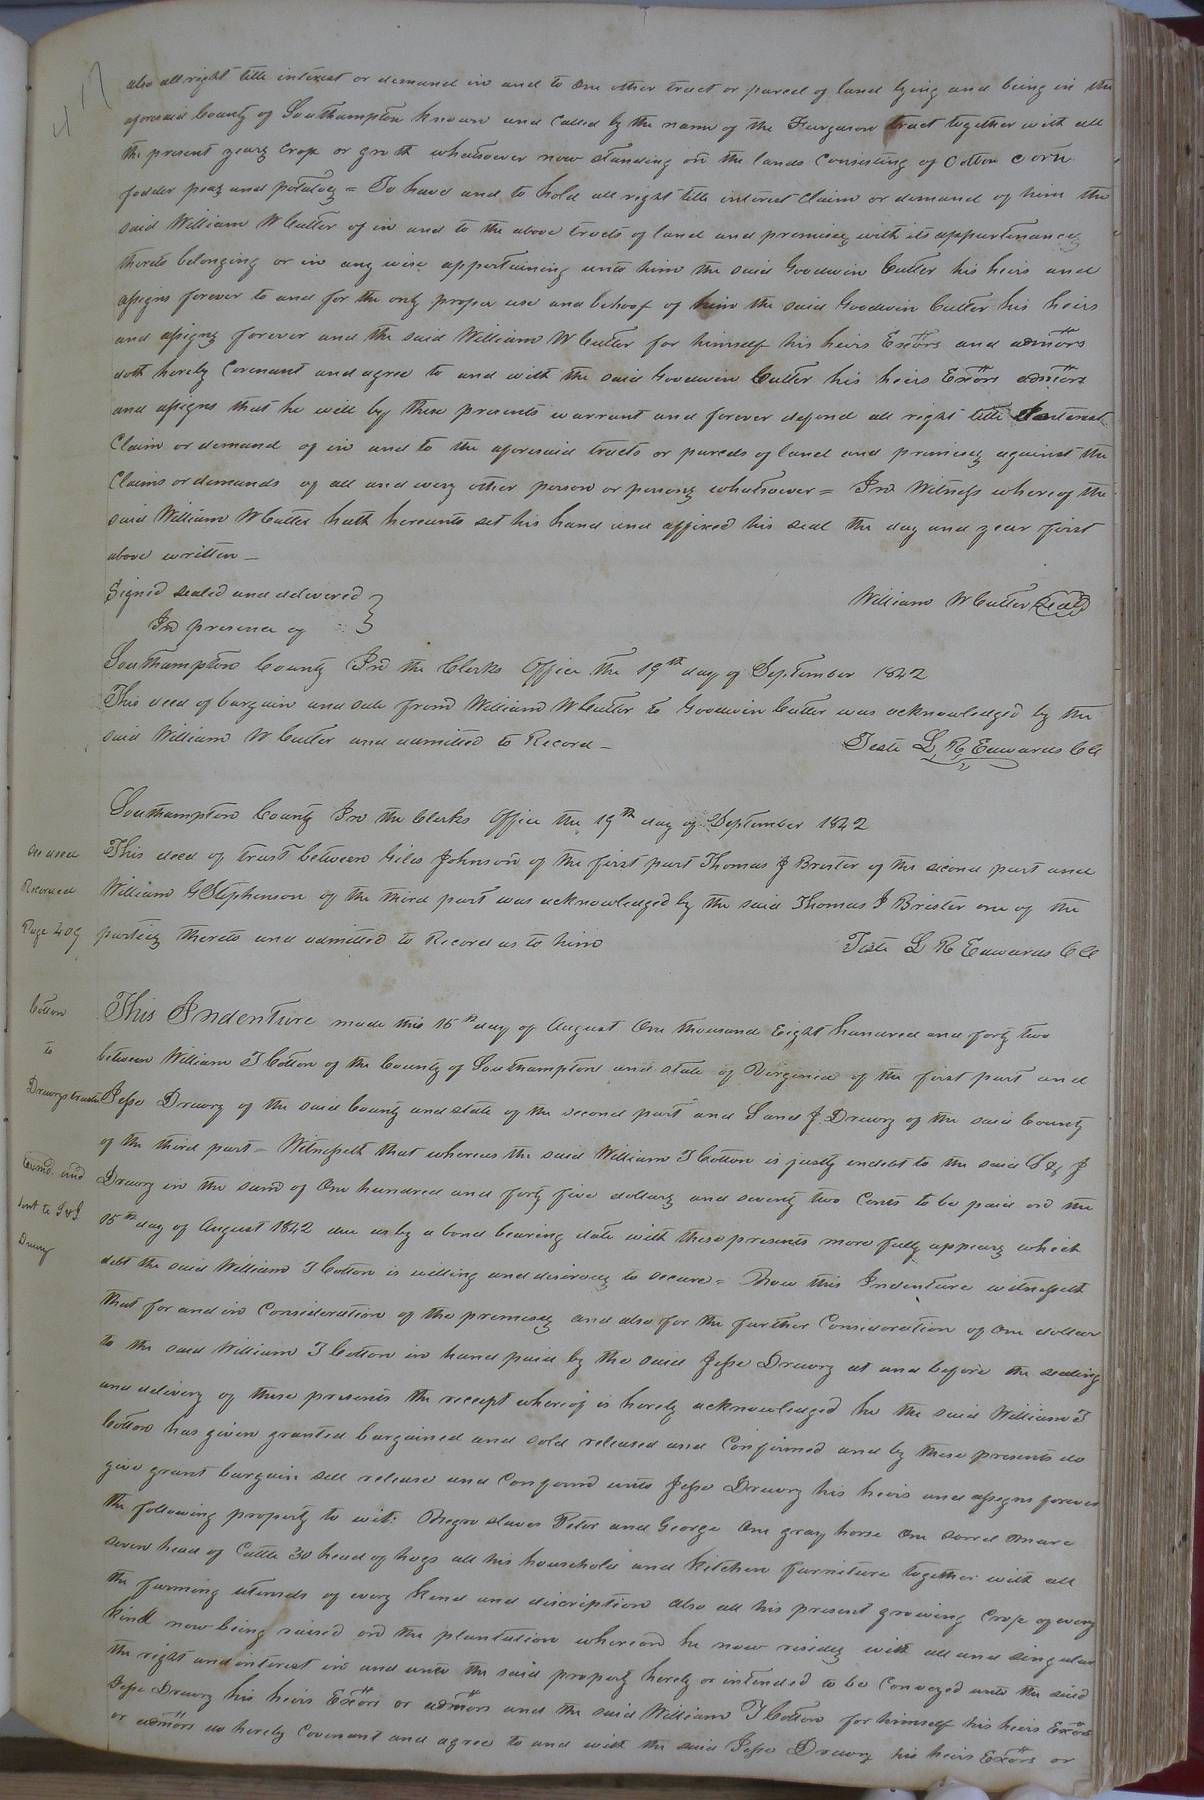 417
also all right title interest or demand in and to one other tract or parcel of land lying and being in the
aforesaid County of Southampton known and called by the name of the Furguson tract together with all
the present years crop or groth whatsoever now standing on the lands Consisting of Cotton corn
fodder peas and potatoes = To have and to hold all right title interest claim or demand of him the
said William W Cutler of in and to the above tracts of land and premises with its appurtenances
thereto belonging or in any wise appertaining unto him the said Goodwin Cutler his heirs and
assigns forever to and for the only proper use and behoof of him the said Goodwin Cutler his heirs
and assigns forever and the said William W Cutler for himself his heirs Exōrs and admōrs
doth hereby Covenant and agree to and with the said Goodwin Cutler his heirs Exōrs admōrs
and assigns that he will by these presents warrant and forever defend all right title interest
Claim or demand of in and to the aforesaid tracts or parcels of land and premises against the
Claims or demands of all and every other person or persons whatsoever = In Witness whereof the
said William W Cutler hath hereunto set his hand and affixed his seal the day and year first
above written —
Signed sealed and delivered }
In presence of
William W Cutler Seal
Southampton County In the Clerks Office the 19th day of September 1842
This deed of bargain and sale from William W Cutler to Goodwin Cutler was acknowledged by the
said William W Cutler and admitted to Record —
Teste L R Edwards CC
Southampton County In the Clerks Office the 19th day of September 1842
see deed
Recorded
Page 409
This deed of trust between Giles Johnson of the first part Thomas J Brister of the second part and
William G Stephenson of the third part was acknowledged by the said Thomas J Brister one of the
parties thereto and admitted to Record as to him
Teste L R Edwards CC
Cotton
to
Drewrys trustee
Examd. and
sent to S & J
Drewry
This Indenture made this 15th day of August One thousand Eight hundred and forty two
between William T Cotton of the County of Southampton and state of Virginia of the first part and
Jesse Drewry of the said County and state of the second part and S and J Drewry of the said County
of the third part = Witnesseth that whereas the said William T Cotton is justly indebt to the said S & J
Drewry in the sum of One hundred and forty five dollars and seventy two Cents to be paid on the
15th day of August 1842 due as by a bond bearing date with these presents more fully appears which
debt the said William T Cotton is willing and desirous to secure = Now this Indenture witnesseth
that for and in Consideration of the premises and also for the further Consideration of one dollar
to the said William T Cotton in hand paid by the said Jesse Drewry at and before the sealing
and delivery of these presents the receipt whereof is hereby acknowledged he the said William T
Cotton has given granted bargained and sold released and Confirmed and by these presents do
give grant bargain sell release and Confirm unto Jesse Drewry his heirs and assigns forever
the following property to wit: Negro slaves Peter and George One gray horse One sorrel mare
seven head of Cattle 30 head of hogs all his household and kitchen furniture together with all
the farming utensils of every kind and discription also all his present growing Crop of every
kind now being raised on the plantation whereon he now resides with all and singular
the right and interest in and unto the said property hereby or intended to be Conveyed unto the said
Jesse Drewry his heirs Exōrs or admōrs and the said William T Cotton for himself his heirs Exōrs
or admōrs do hereby Covenant and agree to and with the said Jesse Drewry his heirs Exōrs or